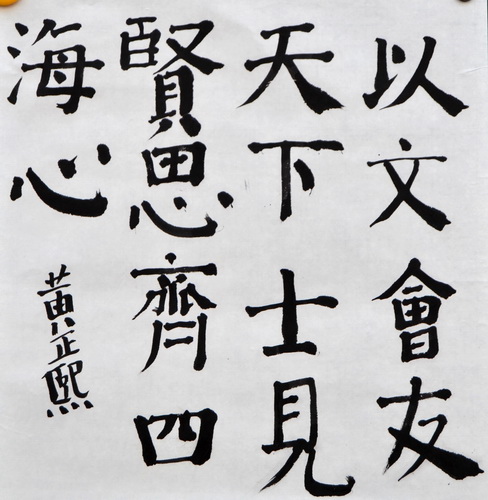 以文會友
天下士見
賢思齊四
海心
黃正熙